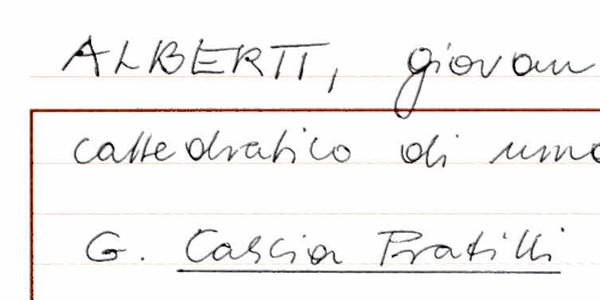 ALBERTI, giovan
cattedratico di uma
G. Cascia Pratilli